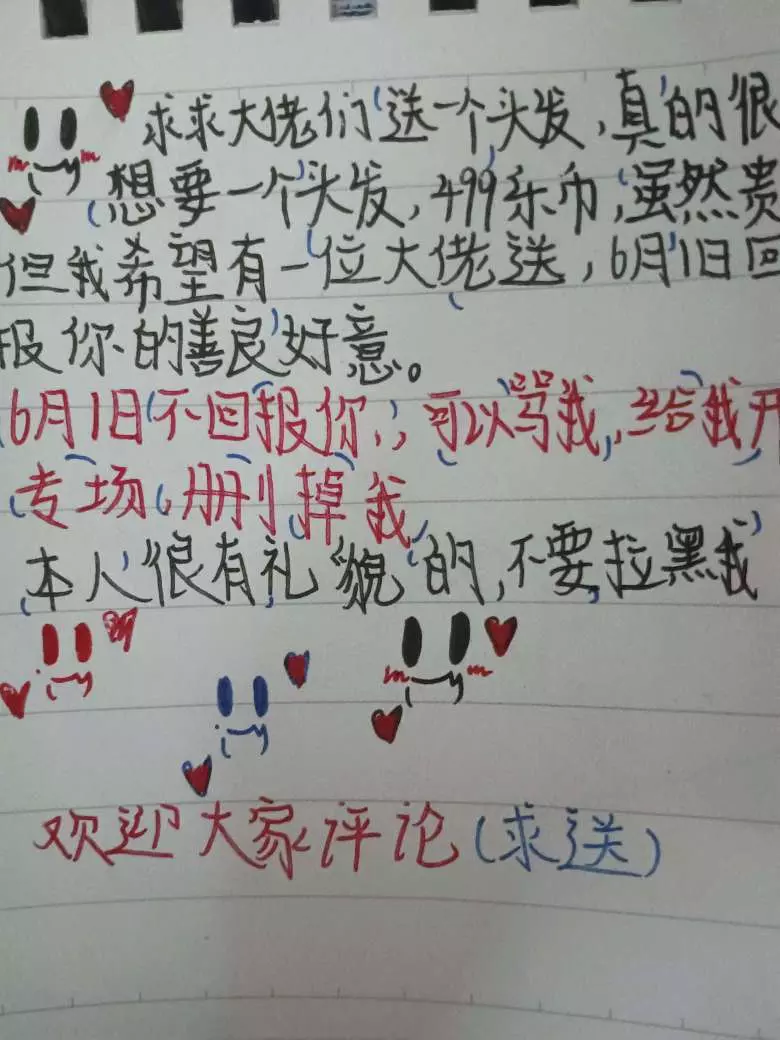 求求大佬们送一个头发,真的很
想要一个头发,499乐币,虽然贵
但我希望有一位大佬送,6月1日回
报你的善良好意。
6月1日不回报你,可以骂我,给我开
专场,删掉我,
本人很有礼貌的,不要拉黑我
欢迎大家评论(求送)